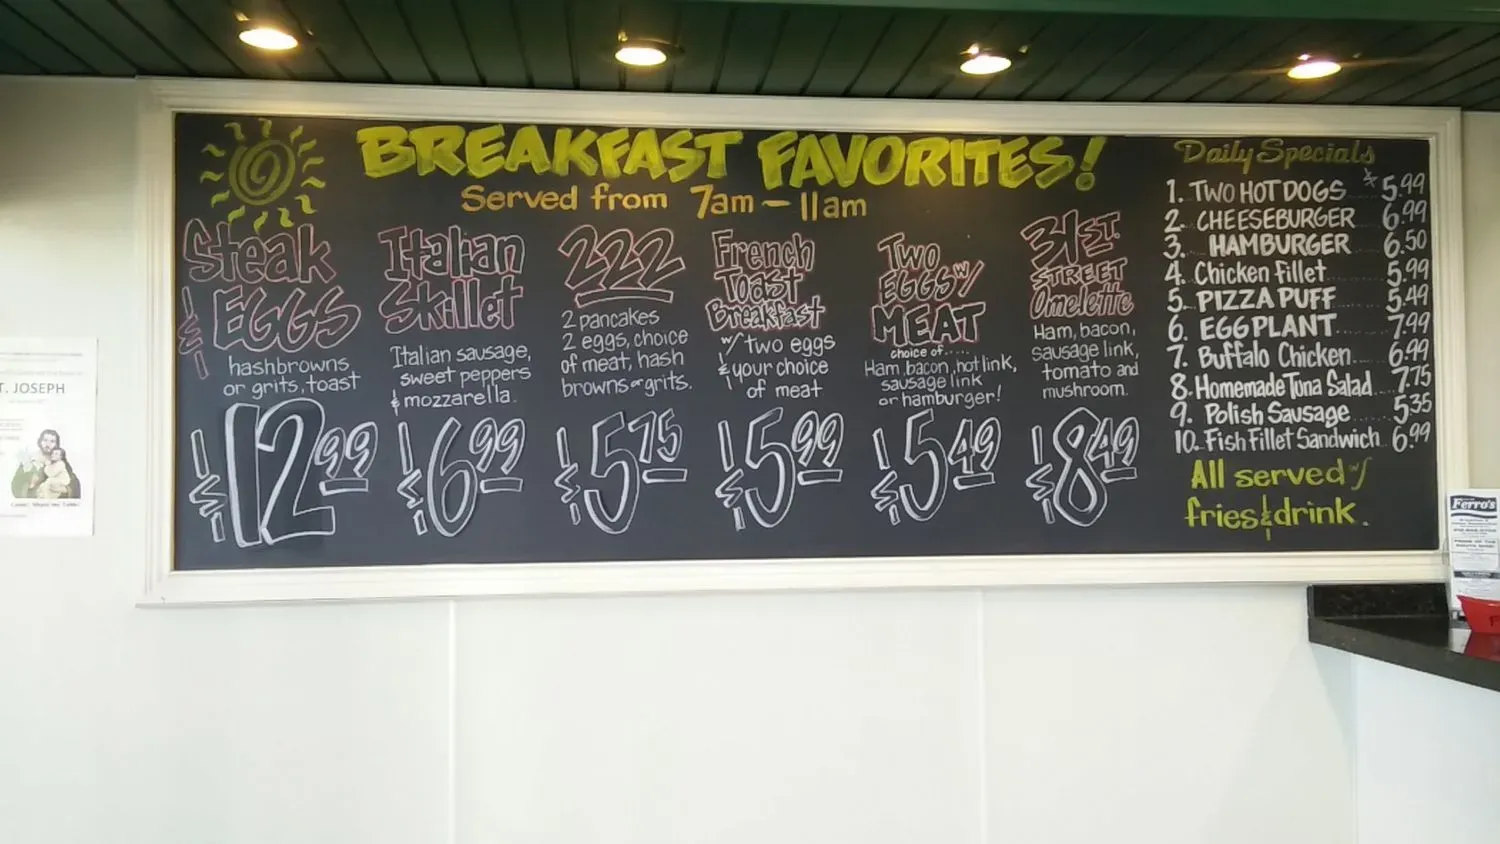 BREAKFAST FAVORITES!
Served from 7am - 11am
Steak
& EGGS
hashbrowns
or grits, toast
$12.99
Italian
Skillet
Italian sausage,
sweet peppers
& mozzarella.
$6.99
222
2 pancakes
2 eggs, choice
of meat, hash
browns or grits.
$5.75
French
Toast
Breakfast
w/ two eggs
& your choice
of meat
$5.99
Two
EGGS w/
MEAT
choice of.....
Ham, bacon, hot link,
sausage link
or hamburger!
$5.49
31ST.
STREET
Omelette
Ham, bacon,
sausage link,
tomato and
mushroom.
$8.49
Daily Specials
1. TWO HOT DOGS $5.99
2. CHEESEBURGER 6.99
3. HAMBURGER 6.50
4. Chicken Fillet 5.99
5. PIZZA PUFF 5.49
6. EGGPLANT 7.99
7. Buffalo Chicken 6.99
8. Homemade Tuna Salad 7.75
9. Polish Sausage 5.35
10. Fish Fillet Sandwich 6.99
All served w/
fries & drink.
T. JOSEPH
Ferro's